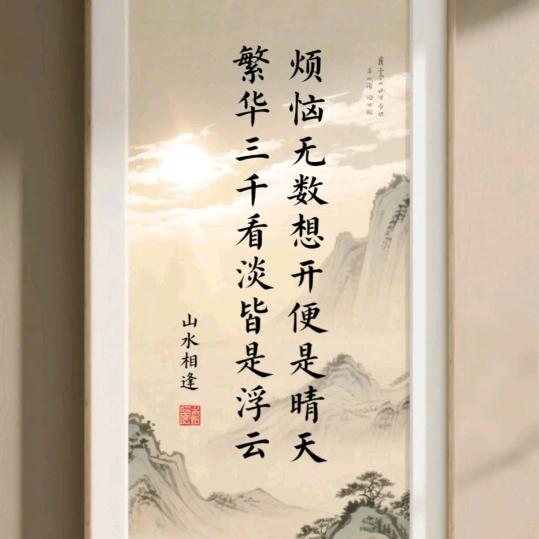 烦恼无数想开便是晴天
繁华三千看淡皆是浮云
山水相逢